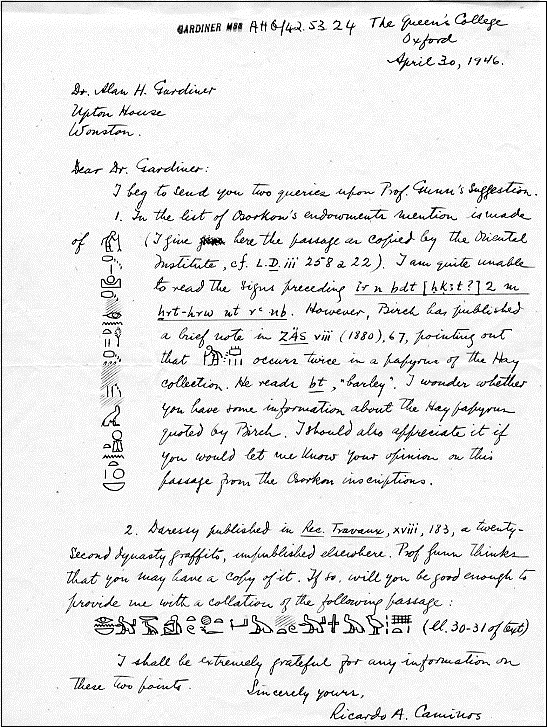 GARDINER MSS AHG/42.53.24 The Queen's College
Oxford
April 30, 1946.
Dr. Alan H. Gardiner
Upton House
Wonston.
Dear Dr. Gardiner:
I beg to send you two queries upon Prof. Gunn's suggestion.
1. In the list of Osorkon's endowments mention is made
of (I give here the passage as copied by the Oriental
Institute, cf. L.D. iii 258 a 22). I am quite unable
to read the signs preceding ir n bdt [ḥḳꜣt?] 2 m
ẖrt-hrw nt rꜥ nb. However, Birch has published
a brief note in ZÄS viii (1880), 67, pointing out
that occurs twice in a papyrus of the Hay
collection. He reads bt, "barley". I wonder whether
you have some information about the Hay papyrus
quoted by Birch. I should also appreciate it if
you would let me know your opinion on this
passage from the Osorkon inscriptions.
2. Daressy published in Rec. Travaux, xviii, 183, a twenty-
second dynasty graffito, unpublished elsewhere. Prof Gunn thinks
that you may have a copy of it. If so, will you be good enough to
provide me with a collation of the following passage:
(ll. 30-31 of text)
I shall be extremely grateful for any information on
these two points.
Sincerely yours,
Ricardo A. Caminos